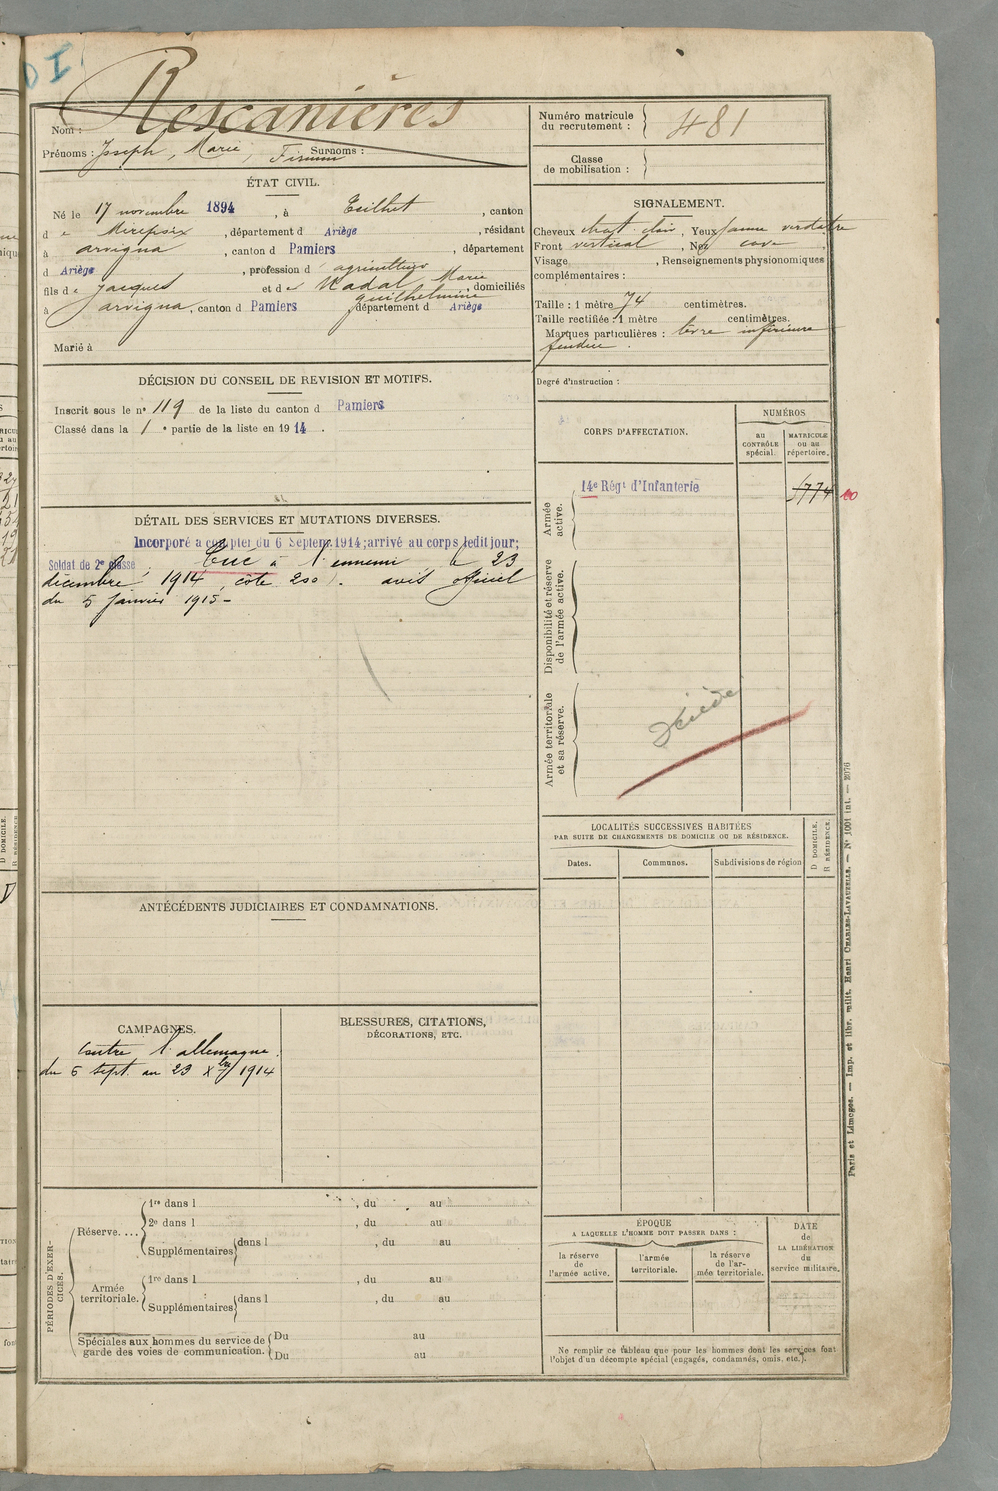 D I
Rescanières
Nom :
Prénoms : Joseph, Marie, Firmin Surnoms :
Numéro matricule
du recrutement : 481
Classe
de mobilisation :
ÉTAT CIVIL.
Né le 17 novembre 1894, à Teilhet, canton
d e Mirepoix, département d Ariège, résidant
à arvigna, canton d Pamiers, département
d Ariège, profession d agriculteur
fils de Jacques et de Nadal Marie guilhelmine, domiciliés
à arvigna, canton d Pamiers, département d Ariège
Marié à
SIGNALEMENT.
Cheveux chat. clair, Yeux jaune verdâtre
Front vertical, Nez cave,
Visage , Renseignements physionomiques
complémentaires :
Taille : 1 mètre 74 centimètres.
Taille rectifiée : 1 mètre centimètres.
Marques particulières : lèvre inférieure
fendue.
Degré d'instruction :
DÉCISION DU CONSEIL DE REVISION ET MOTIFS.
Inscrit sous le n° 119 de la liste du canton d Pamiers
Classé dans la 1 e partie de la liste en 1914.
CORPS D'AFFECTATION.
NUMÉROS
au
CONTRÔLE
spécial.
MATRICULE
ou au
répertoire.
Armée
active.
14e Régt d'Infanterie
5774
Disponibilité et réserve
de l'armée active.
Armée territoriale
et sa réserve.
Décédé
DÉTAIL DES SERVICES ET MUTATIONS DIVERSES.
Incorporé à compter du 6 Septem. 1914; arrivé au corps ledit jour;
Soldat de 2e classe. Tué à l'ennemi le 23
décembre 1914 (côte 200). avis officiel
du 5 janvier 1915-
LOCALITÉS SUCCESSIVES HABITÉES
PAR SUITE DE CHANGEMENTS DE DOMICILE OU DE RÉSIDENCE.
Dates.
Communes.
Subdivisions de région
D DOMICILE.
R RÉSIDENCE.
ANTÉCÉDENTS JUDICIAIRES ET CONDAMNATIONS.
CAMPAGNES.
Contre l'allemagne.
du 6 sept. au 23 Xbre 1914
BLESSURES, CITATIONS,
DÉCORATIONS, ETC.
PÉRIODES D'EXER-
CICES.
Réserve....
1re dans l , du au
2e dans l , du au
Supplémentaires dans l , du au
Armée
territoriale.
1re dans l , du au
Supplémentaires dans l , du au
Spéciales aux hommes du service de
garde des voies de communication.
Du au
Du au
ÉPOQUE
A LAQUELLE L'HOMME DOIT PASSER DANS :
la réserve
de
l'armée active.
l'armée
territoriale.
la réserve
de l'ar-
mée territoriale.
DATE
de
LA LIBÉRATION
du
service militaire.
Ne remplir ce tableau que pour les hommes dont les services font
l'objet d'un décompte spécial (engagés, condamnés, omis, etc.).
Paris et Limoges. — Imp. et libr. milit. Henri CHARLES-LAVAUZELLE. — N° 1001 int. — 2076